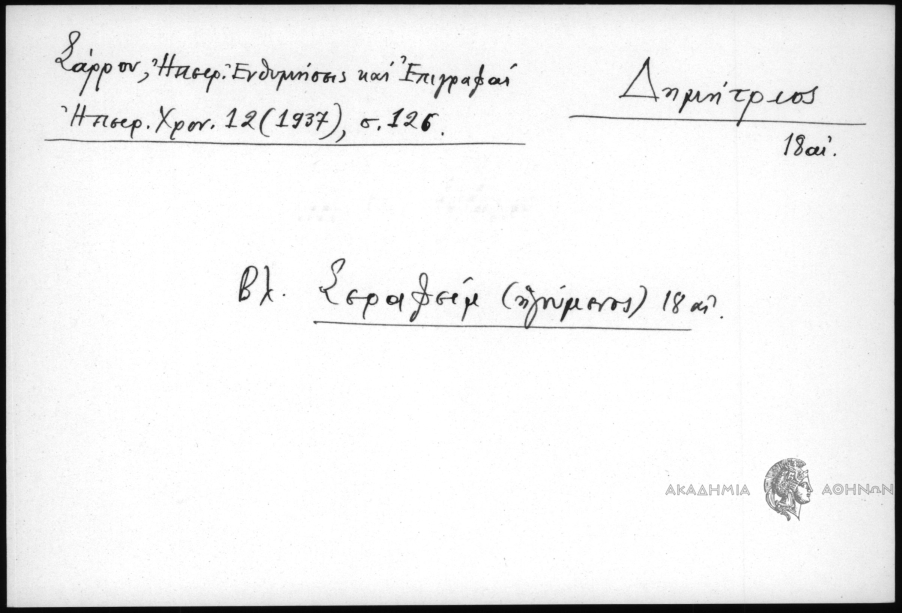 Σάρρου, Ἠπειρ. Ἐνθυμήσεις καὶ Ἐπιγραφαὶ
Ἠπειρ. Χρον. 12 (1937), σ. 126.
Δημήτριος
18 αἰ.
Βλ. Σεραφείμ (ἡγούμενος) 18 αἰ.
ΑΚΑΔΗΜΙΑ ΑΘΗΝΩΝ